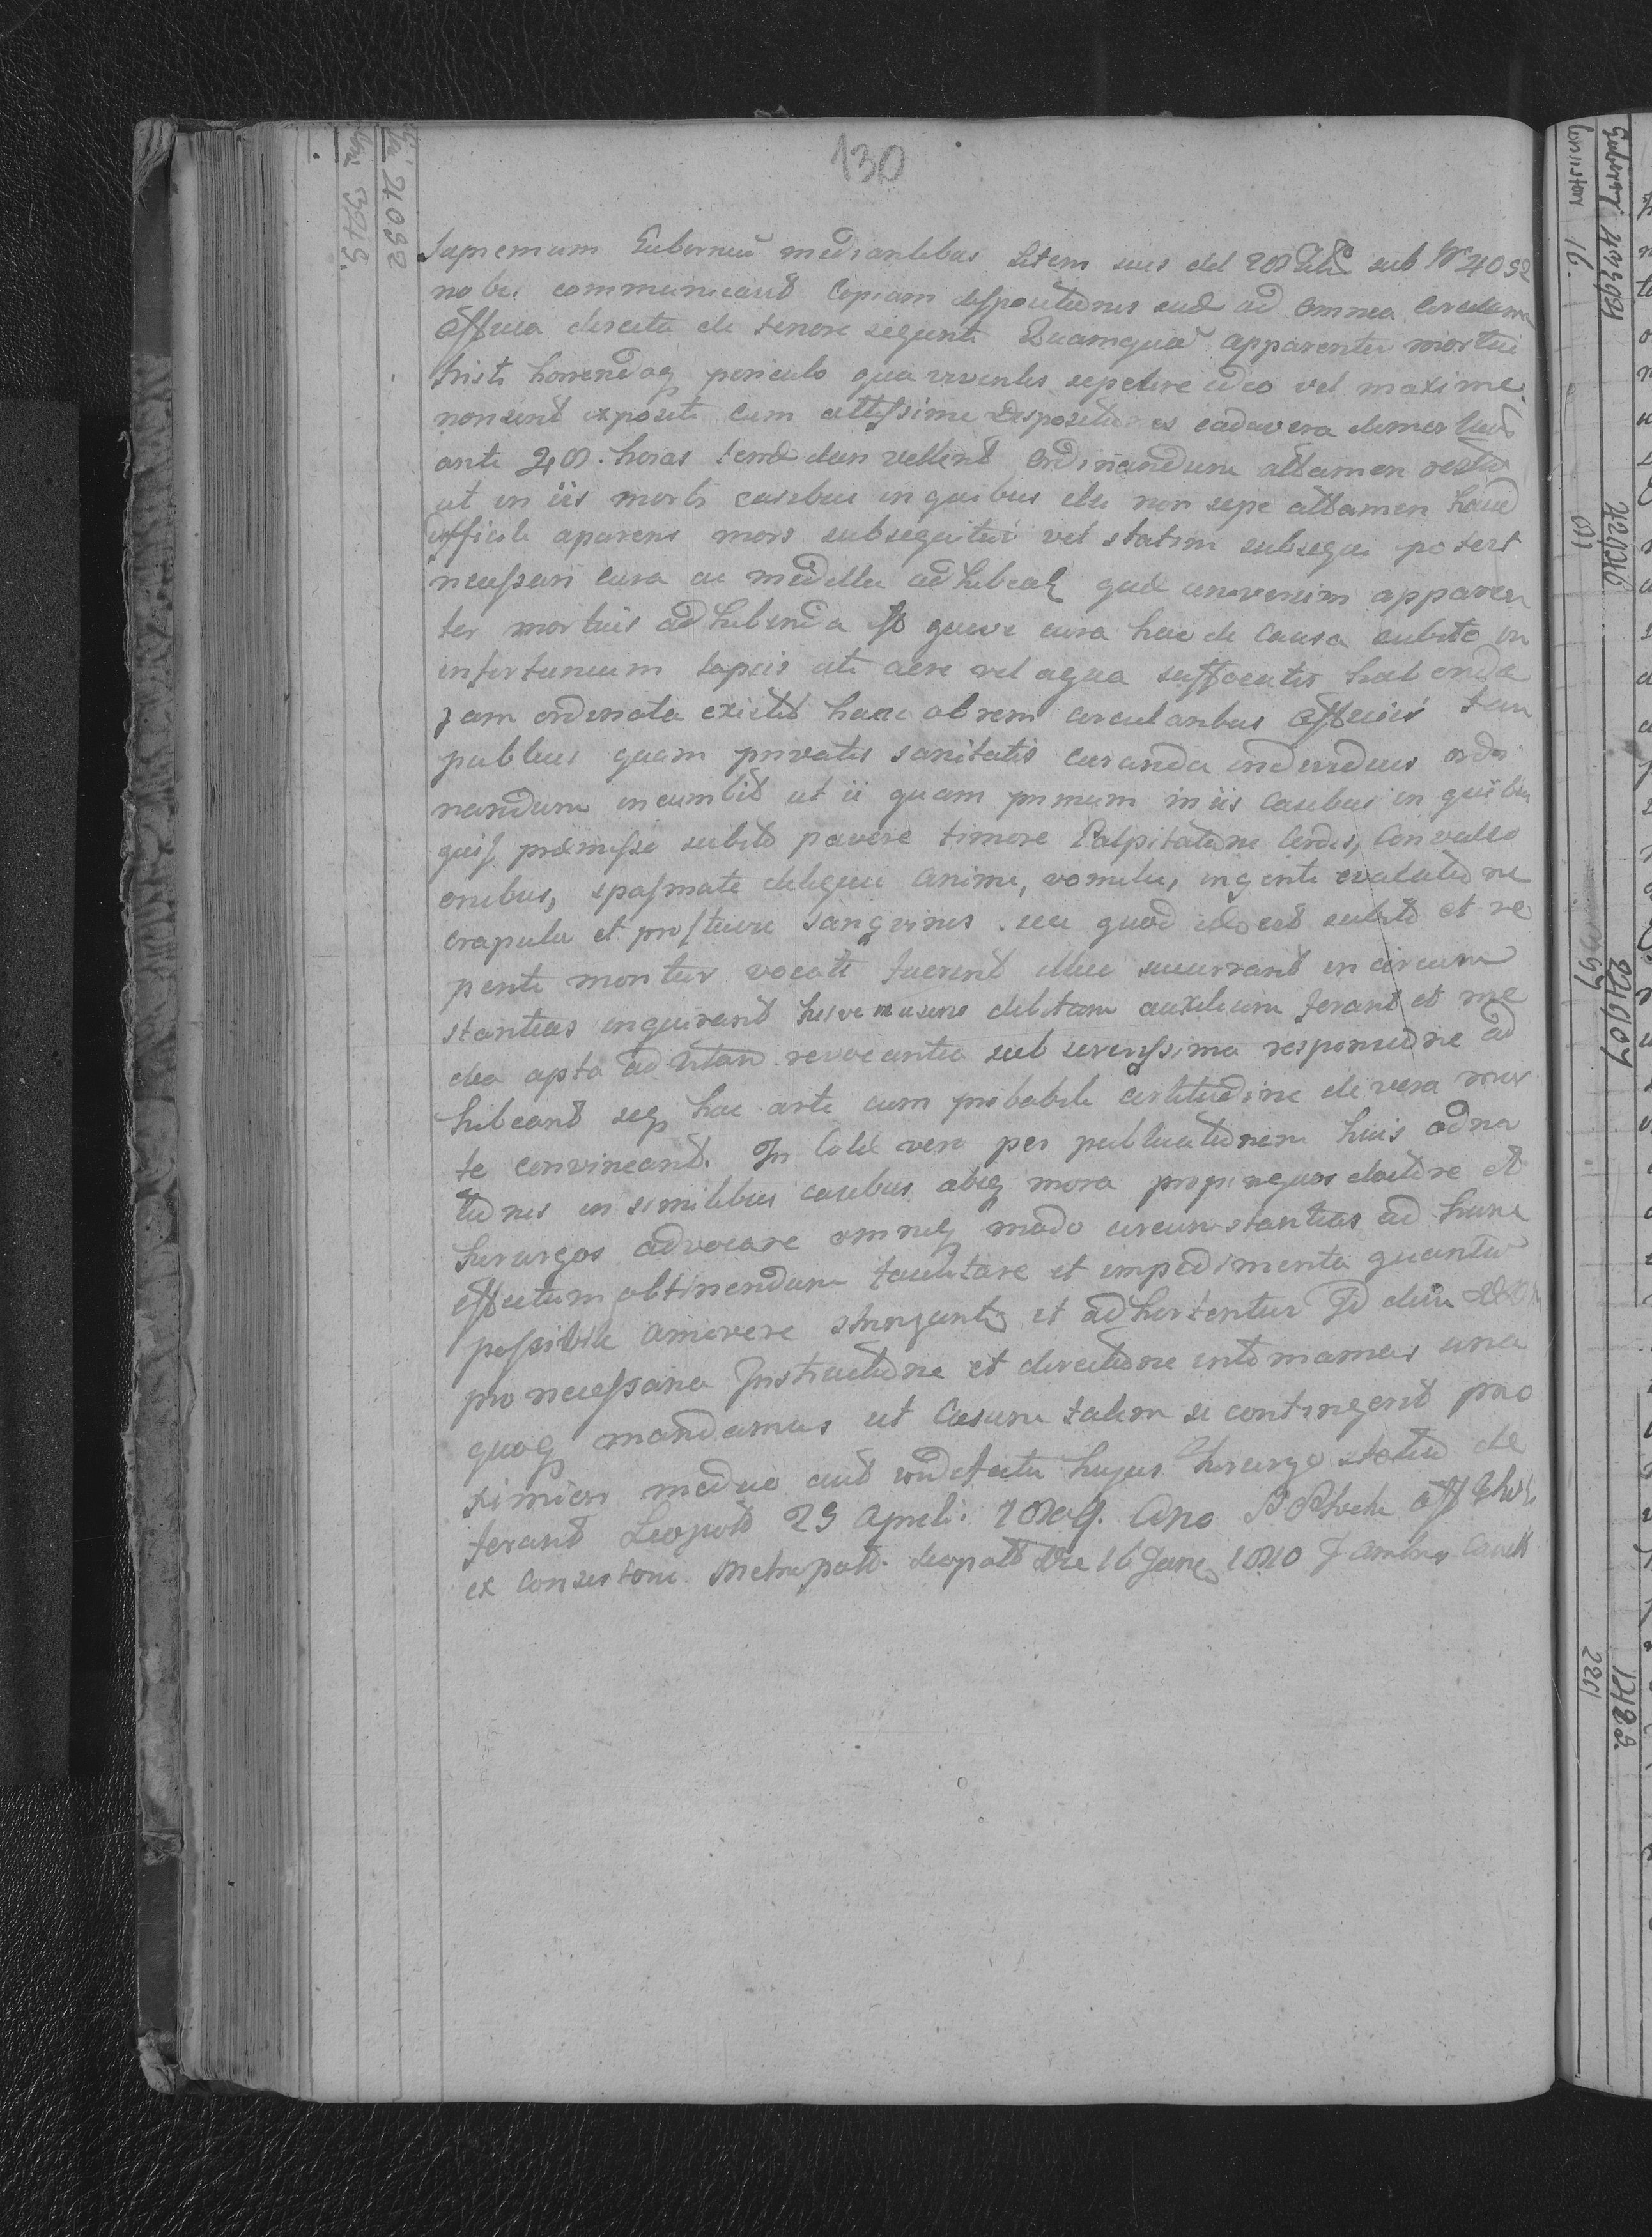 130
4092
379.
Supremum Guberniu mediantibus Litem suis dd 28 Feb sub Nr 4092
nobis communicavit Copiam dispositionis sud ad Omnea Circularia
Officia directa de tenore sequenti Quamquā apparenter mortui
tristi horrendoq periculo qua viventes sepelire ideo vel maxime
non sunt expositi cum altissime Dispositiones cadavera demortuor
ante 48. horas tend dari vellent Ordinandum attamen restat
ut in iis morbi casibus in quibus etsi non sepe attamen haud
difficile aparens mors subsequitur vel statim subsequi poterit
necessari cura ac medella adhibeat quæ unovenim apparen
ter mortuis adhibenda est queve cura hac de causa subito in
infortunium lapsis uti aere vel aqua suffocatis habenda
jam ordinata existit hanc ob rem circularibus Officiis tam
publicis quam privatis sanitatis curanda individuis ordi
nandum incumbit ut ii quam primum in iis Casibus in quibus
quis præmisso subito pavore timore Palpitatione Cordis, Convulsi
onibus, spasmate deliquio animi, vomitu, ingenti evacuatione
crapula et profluvio Sangvinis seu quod idem est subito et re
pente moritur vocati fuerint illuc succurrant in circum
stantias inquirant hisve debitam auxilium ferant et me
dia apta ad vitam revocantia sub severissima responsione ad
hibeant seq hac arte cum probabili certitudine de vera mor
te convincant. In Cold vero per publicationem huis odna
tionis in similibus casibus absq mora propinquos doctore et
hirurgos advocare omniq modo circumstantias ad hunc
effectum obtinendum facilitare et impedimenta quantū
possibile amovere stringant et adhortentur Id dum
pro necessaria Instructione et directione intimamus una
quoq mandamus ut Casum talem si contingerit pro
ximiori medico aut in defectu hujus hirurgo statim de
ferant Leopold 29 Aprili 1809. Ano
ex Consistorio Metropolt. Leopolt Die 16 Juny 1810
Gubern 42994
Consistor 16.
42046
61
24009
1423.
2261